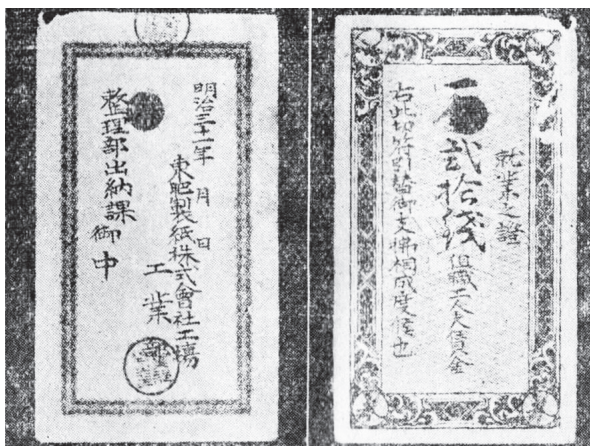 就業之證
貳拾錢 但職工人夫賃金
右此切符引替御支拂相成度候也
明治三十一年 月 日
東肥製紙株式會社工場
工業部
整理部出納課御中